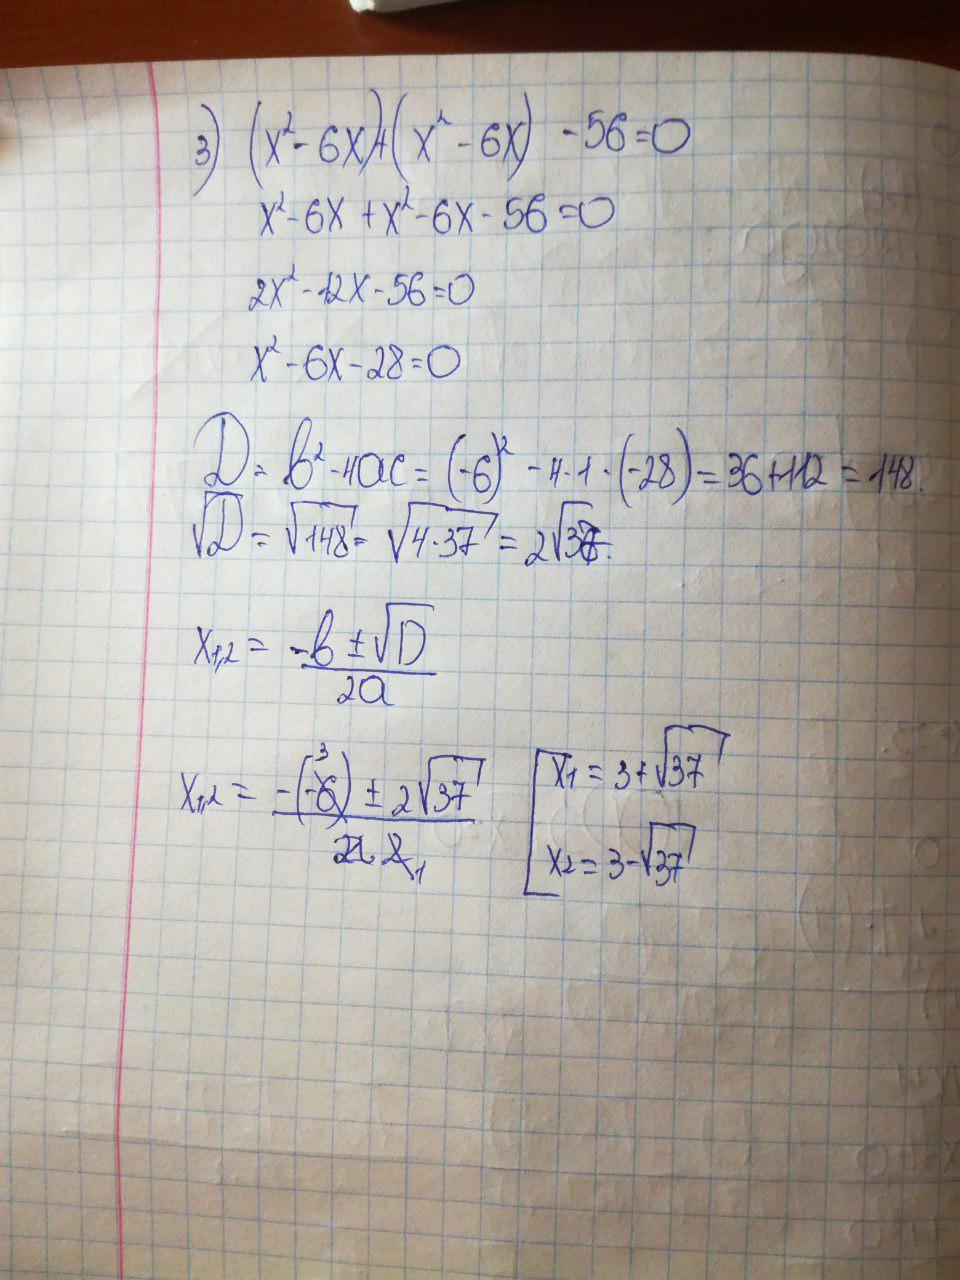 3) (x² - 6x)+(x² - 6x) - 56=0
x² - 6x + x² - 6x - 56 = 0
2x² - 12x - 56 = 0
x² - 6x - 28 = 0
D = b² - 4ac = (-6)² - 4·1·(-28) = 36+112 = 148.
√D = √148 = √4·37 = 2√37.
x1,2 = -b ± √D / 2a
x1,2 = -(-6) ± 2√37 / 2 3 1
x1 = 3+√37
x2 = 3-√37